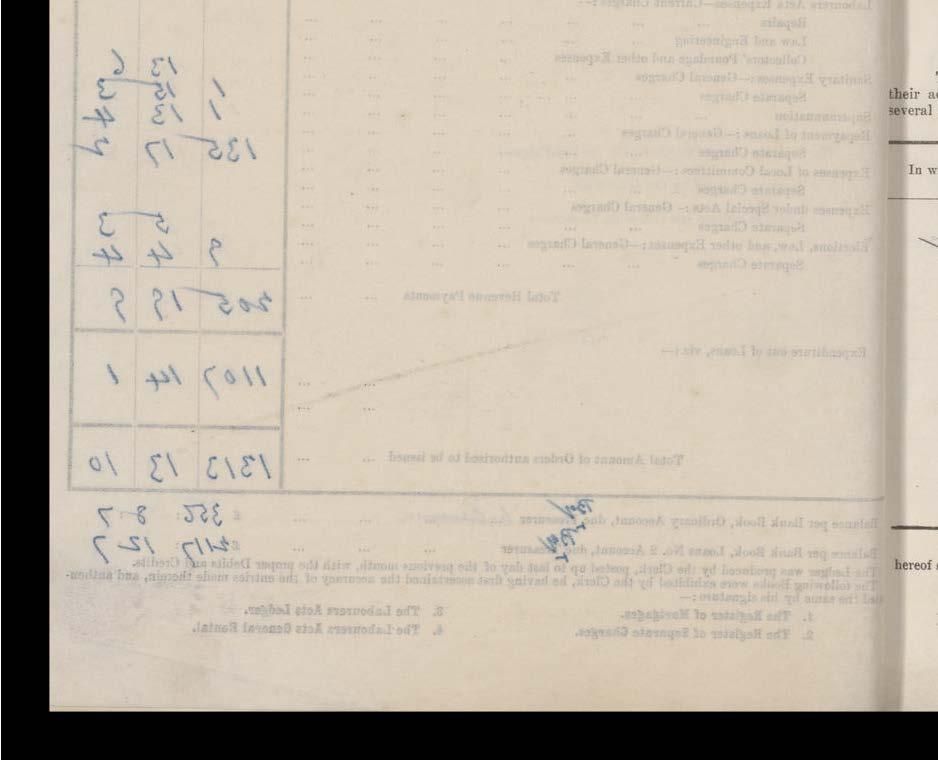 Labourers Acts Expenses—Current Charges:—
Repairs ... ... ... ... ...
Law and Engineering ... ... ... ...
Collectors' Poundage and other Expenses ... ...
Sanitary Expenses:—General Charges ... ... ...
Separate Charges ... ... ... ...
Superannuation ... ... ... ... 1 13 4
Repayment of Loans:—General Charges ... ... ... 135 17
Separate Charges ... ... ... ...
Expenses of Local Committees:—General Charges ... ...
Separate Charges ... ... ... ...
Expenses under Special Acts:—General Charges ... ...
Separate Charges ... ... ... ... 5 3
Elections, Law, and other Expenses:—General Charges ... ... 9 4 4
Separate Charges ... ... ... ...
Total Revenue Payments ... ... 205 19 9
Expenditure out of Loans, viz:—
... ... 1107 14 1
... ...
Total Amount of Orders authorised to be issued ... ... 1313 13 10
Balance per Bank Book, Ordinary Account, due Treasurer ... ... ... £ 352: 8-7
Balance per Bank Book, Loans No. 2 Account, due Treasurer ... ... ... £ 2117: 12-7
The Ledger was produced by the Clerk, posted up to last day of the previous month, with the proper Debits and Credits.
The following Books were exhibited by the Clerk, he having first ascertained the accuracy of the entries made therein, and authen-
ted the same by his signature:—
1. The Register of Mortgages.
2. The Register of Separate Charges.
3. The Labourers Acts Ledger.
4. The Labourers Acts General Rental.
their ac
several
In w
hereof